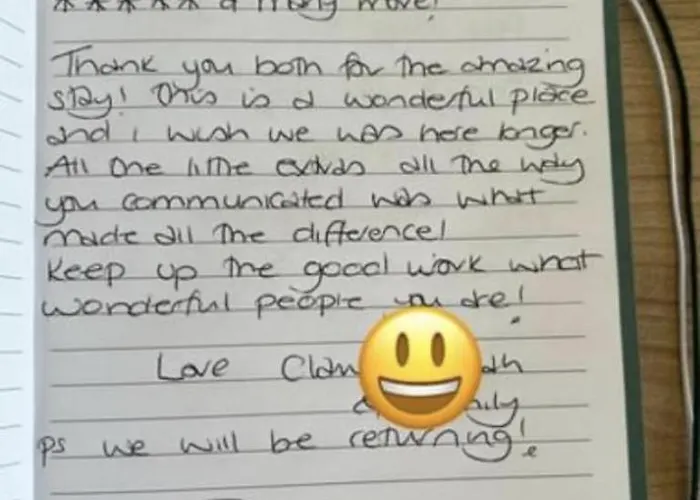 ***** a truly
Thank you both for the amazing
stay! This is a wonderful place
and i wish we was here longer.
All the little extras all the way
you communicated was what
made all the difference!
Keep up the good work what
wonderful people you are!
Love
ps we will be returning!